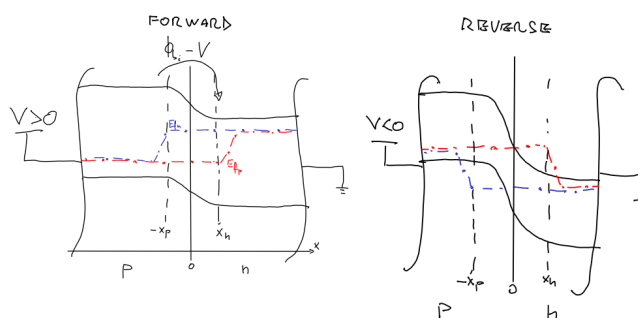 FORWARD
ϕi - V
V>0
Efn
Efp
-xp
0
xn
x
p
n
REVERSE
V<0
-xp
0
xn
p
n